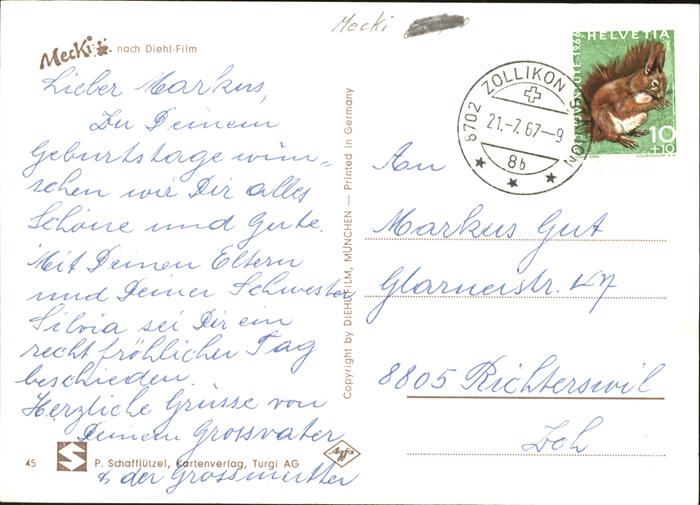 Mecki
Mecki nach Diehl-Film
Lieber Markus,
Zu Deinem
Geburtstage wün=
schen wir Dir alles
Schöne und Gute.
Mit Deinen Eltern
und Deiner Schwester
Silvia sei Dir ein
recht fröhlicher Tag
beschieden.
Herzliche Grüsse von
Deinem Grossvater
& der Grossmutter
45
P. Schafflützel, Kartenverlag, Turgi AG
Agfa
Copyright by DIEHLFILM, MÜNCHEN — Printed in Germany
8702 ZOLLIKON STATION
21.-7.67—9
8b
HELVETIA
JUVENTUTE 1966
10
+10
COURVOISIER S.A.
An
Markus Gut
Glarnerstr. 47
8805 Richterswil
Zch